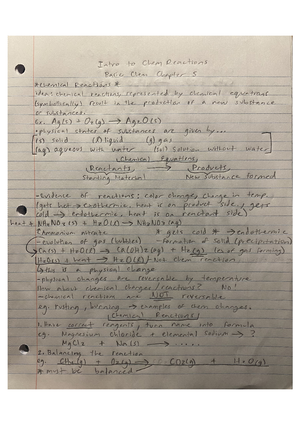 Intro to Chem Reactions
Basic Chem Chapter 5
*Chemical Reactions*
chemical reactions, represented by chemical equations
(symbolically) result in the production of a new substance
or substances.
Ex. Ag(s) + O2(g) → Ag2O(s)
•physical states of substances are given by...
(s) solid (l) liquid (g) gas
(aq) aqueous with water (sol) Solution without water
Chemical Equations
Reactants → Products
Starting Material New Substance formed
-Evidence of reactions: color changes, change in temp
(gets hot → Exothermic, heat is on product side, gets
cold → endothermic, heat is on reactant side)
heat + NH4NO3(s) + H2O(l) → NH4NO3(aq)
ammonium nitrate * gets cold * → endothermic
-evolution of gas (bubbles) -formation of solid (precipitation)
Ca(s) + H2O(l) → Ca(OH)2 + H2(g)
H2O(s) + heat → H2O(l) - Not Chem reaction
is a physical change
-physical changes are reversible by temperature
How about chemical changes/reactions? No!
-chemical reactions are NOT reversable.
eg. Rusting, burning → examples of chem changes.
Chemical Reactions
1. Have correct reagents, then name into formula
eg. Magnesium Chloride + elemental sodium → ?
MgCl2 + Na(s) → ......
2. Balancing the reaction
eg. CH4(g) + O2(g) → CO2(g) + H2O(g)
* must be balanced